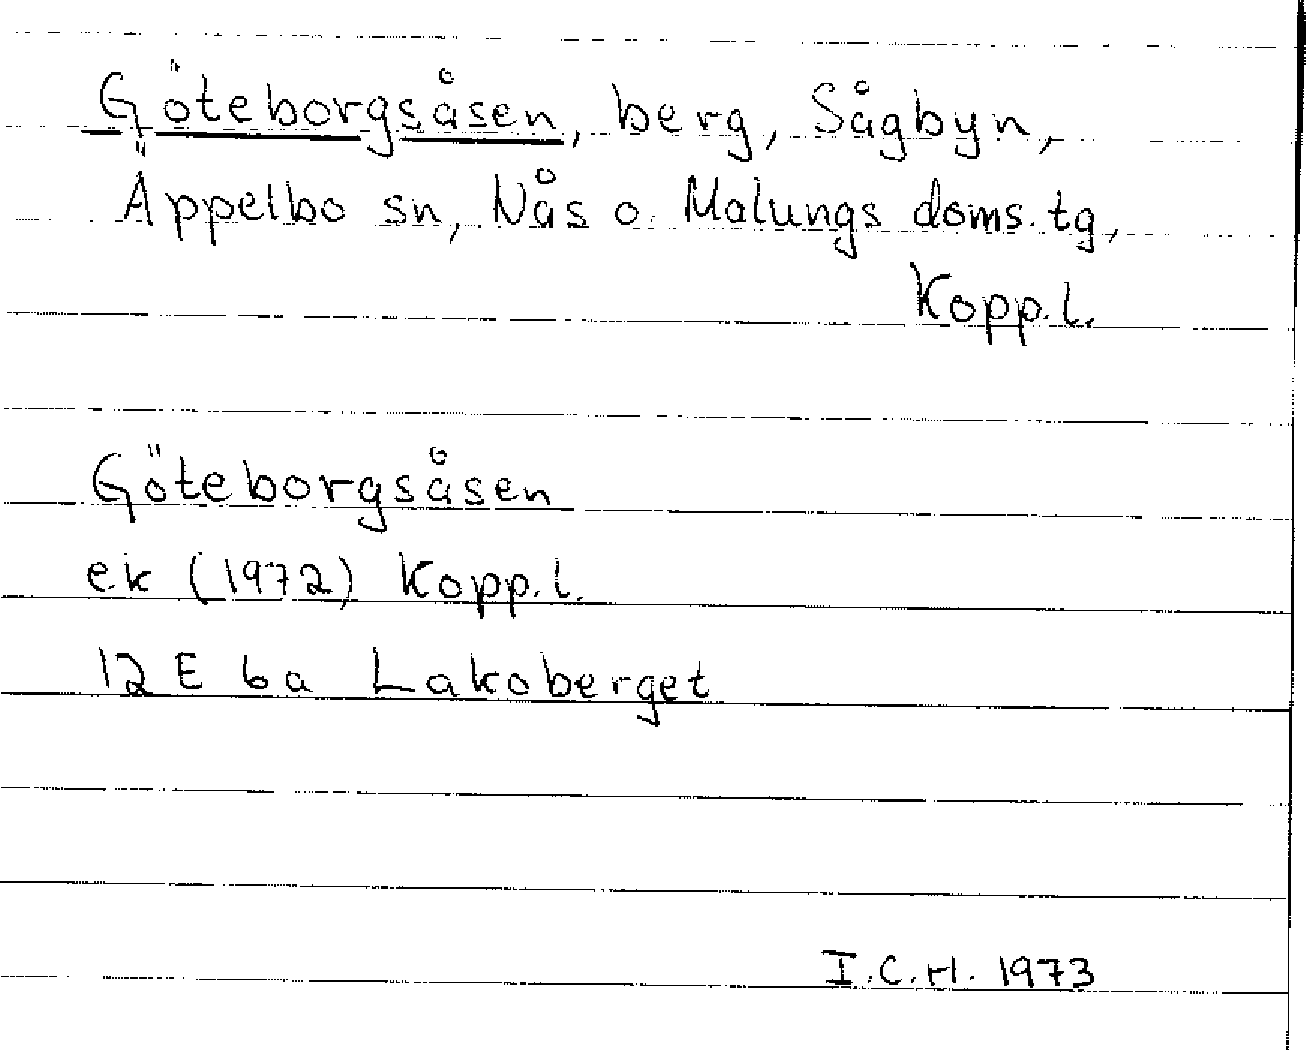 Göteborgsåsen, berg, Sågbyn,
Äppelbo sn, Nås o. Malungs doms. tg,
Kopp. l.
Göteborgsåsen
ek (1972) Kopp. l.
12 E 6a Lakoberget
I.C.H. 1973